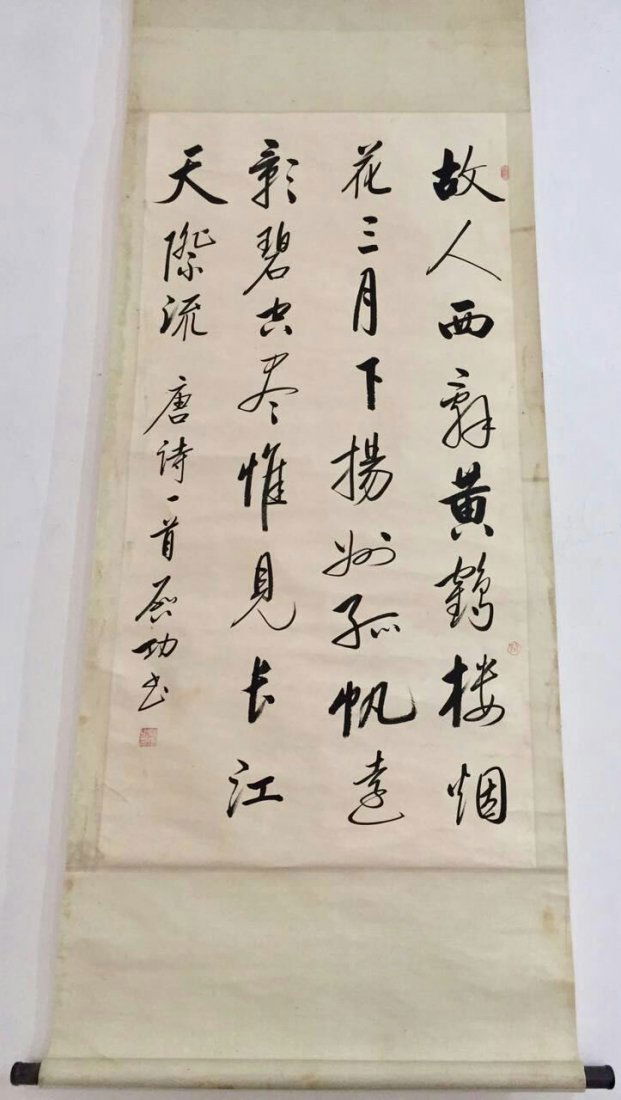 故人西辞黄鹤楼烟
花三月下揚州孤帆遠
影碧空尽惟見长江
天際流
唐诗一首启功书